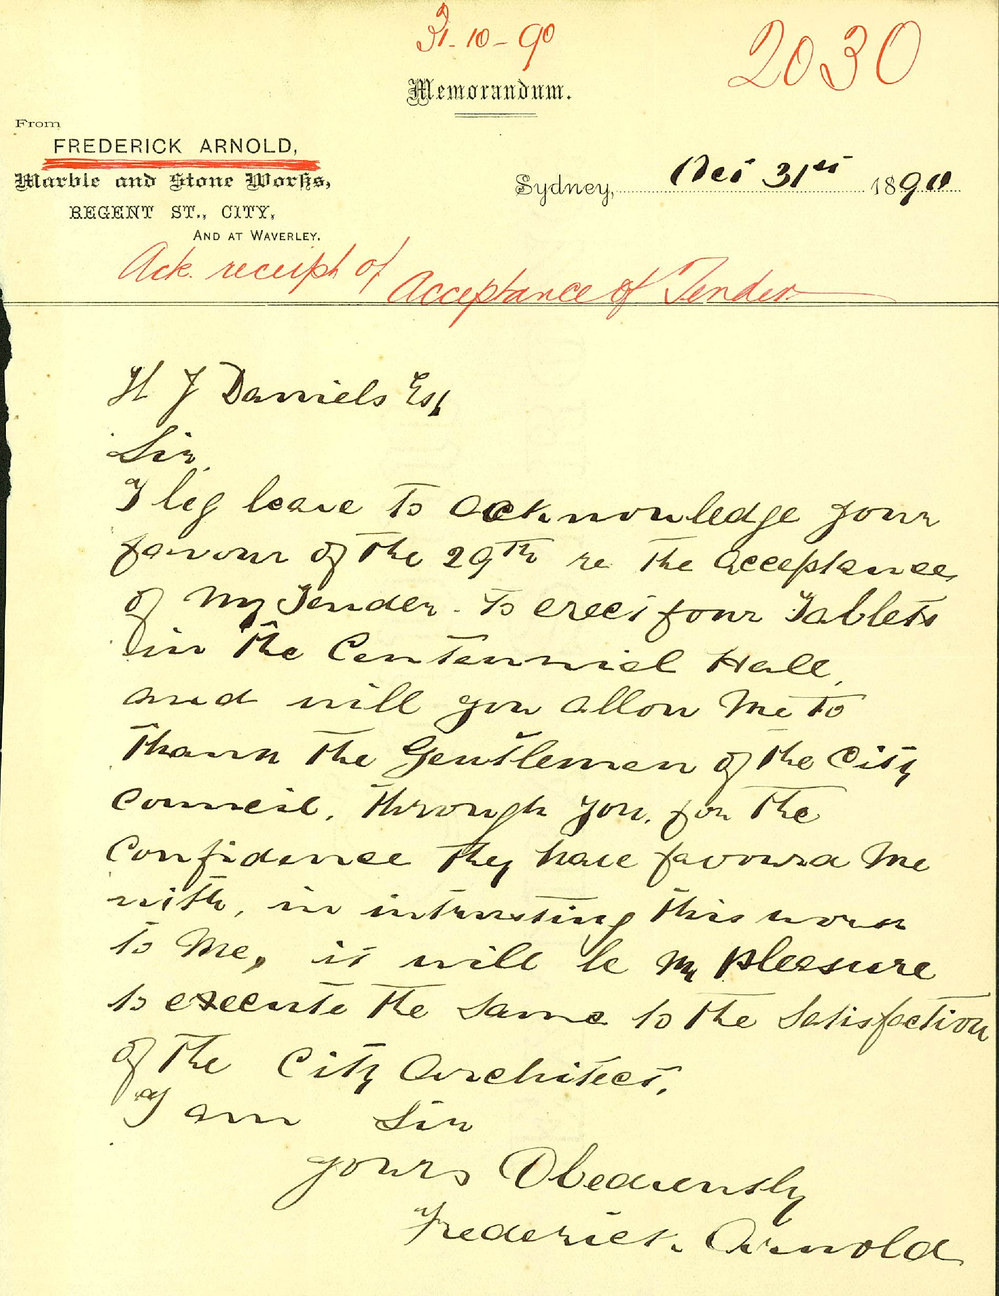 31-10-90
2030
Memorandum.
From
FREDERICK ARNOLD,
Marble and Stone Works,
REGENT ST., CITY,
AND AT WAVERLEY.
Sydney, Oct 31st 1890
Ack. receipt of Acceptance of Tender
H J Daniels Esq
Sir
I beg leave to acknowledge your
favour of the 29th re the acceptance
of my Tender - to erect four Tablets
in the Centennial Hall,
and will you allow me to
thank the Gentlemen of the City
Council, through you, for the
Confidence they have favoured me
with, in intrusting this work
to me, it will be my pleasure
to execute the same to the satisfaction
of the City Architect,
I am Sir
yours Obediently
Frederick Arnold